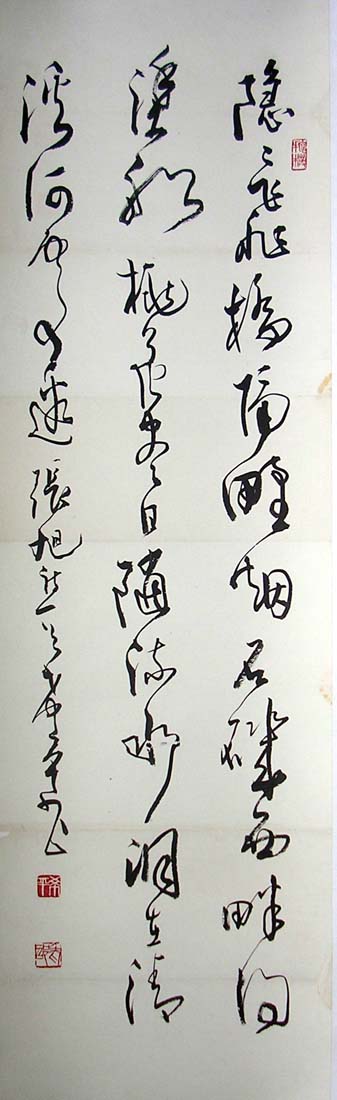 隱〻飛橋隔野烟石磯西畔問
漁船桃花盡日隨流水洞在清
溪何處邊張旭詩一首